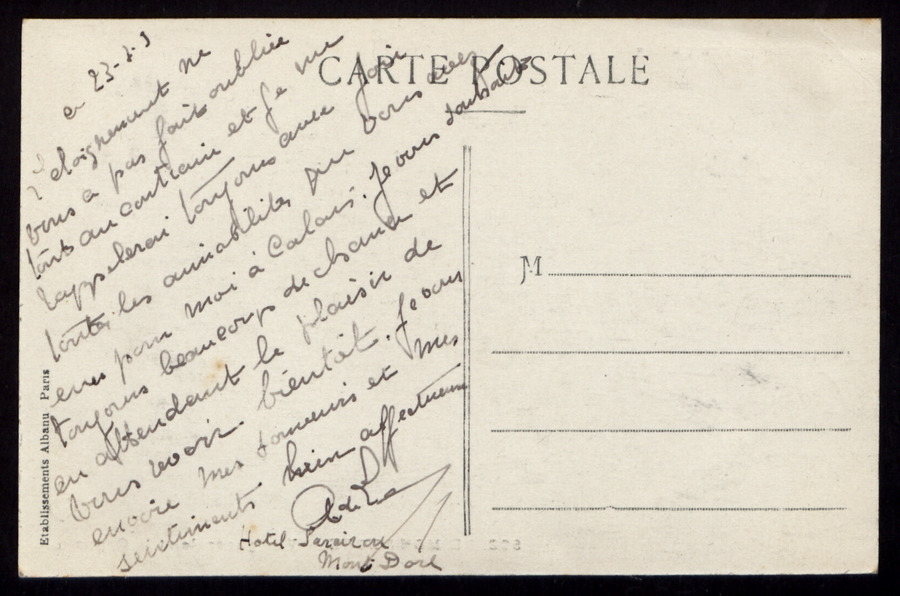 CARTE POSTALE
L'éloignement ne
vous a pas fait oublier
tout au contraire et je me
rappelerai toujours avec joie
toutes les amabilités que vous avez
eues pour moi à Calais. Je vous souhaite
toujours beaucoup de chance et
en attendant le plaisir de
vous revoir bientôt. Je vous
envoie mes souvenirs et mes
sentiments bien affectueux
Hotel
Mont Dore
M
Etablissements Albanu Paris